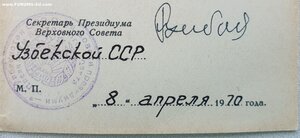 Секретарь Президиума
Верховного Совета
Узбекской ССР
М. П.
„8“ апреля 1970 года.